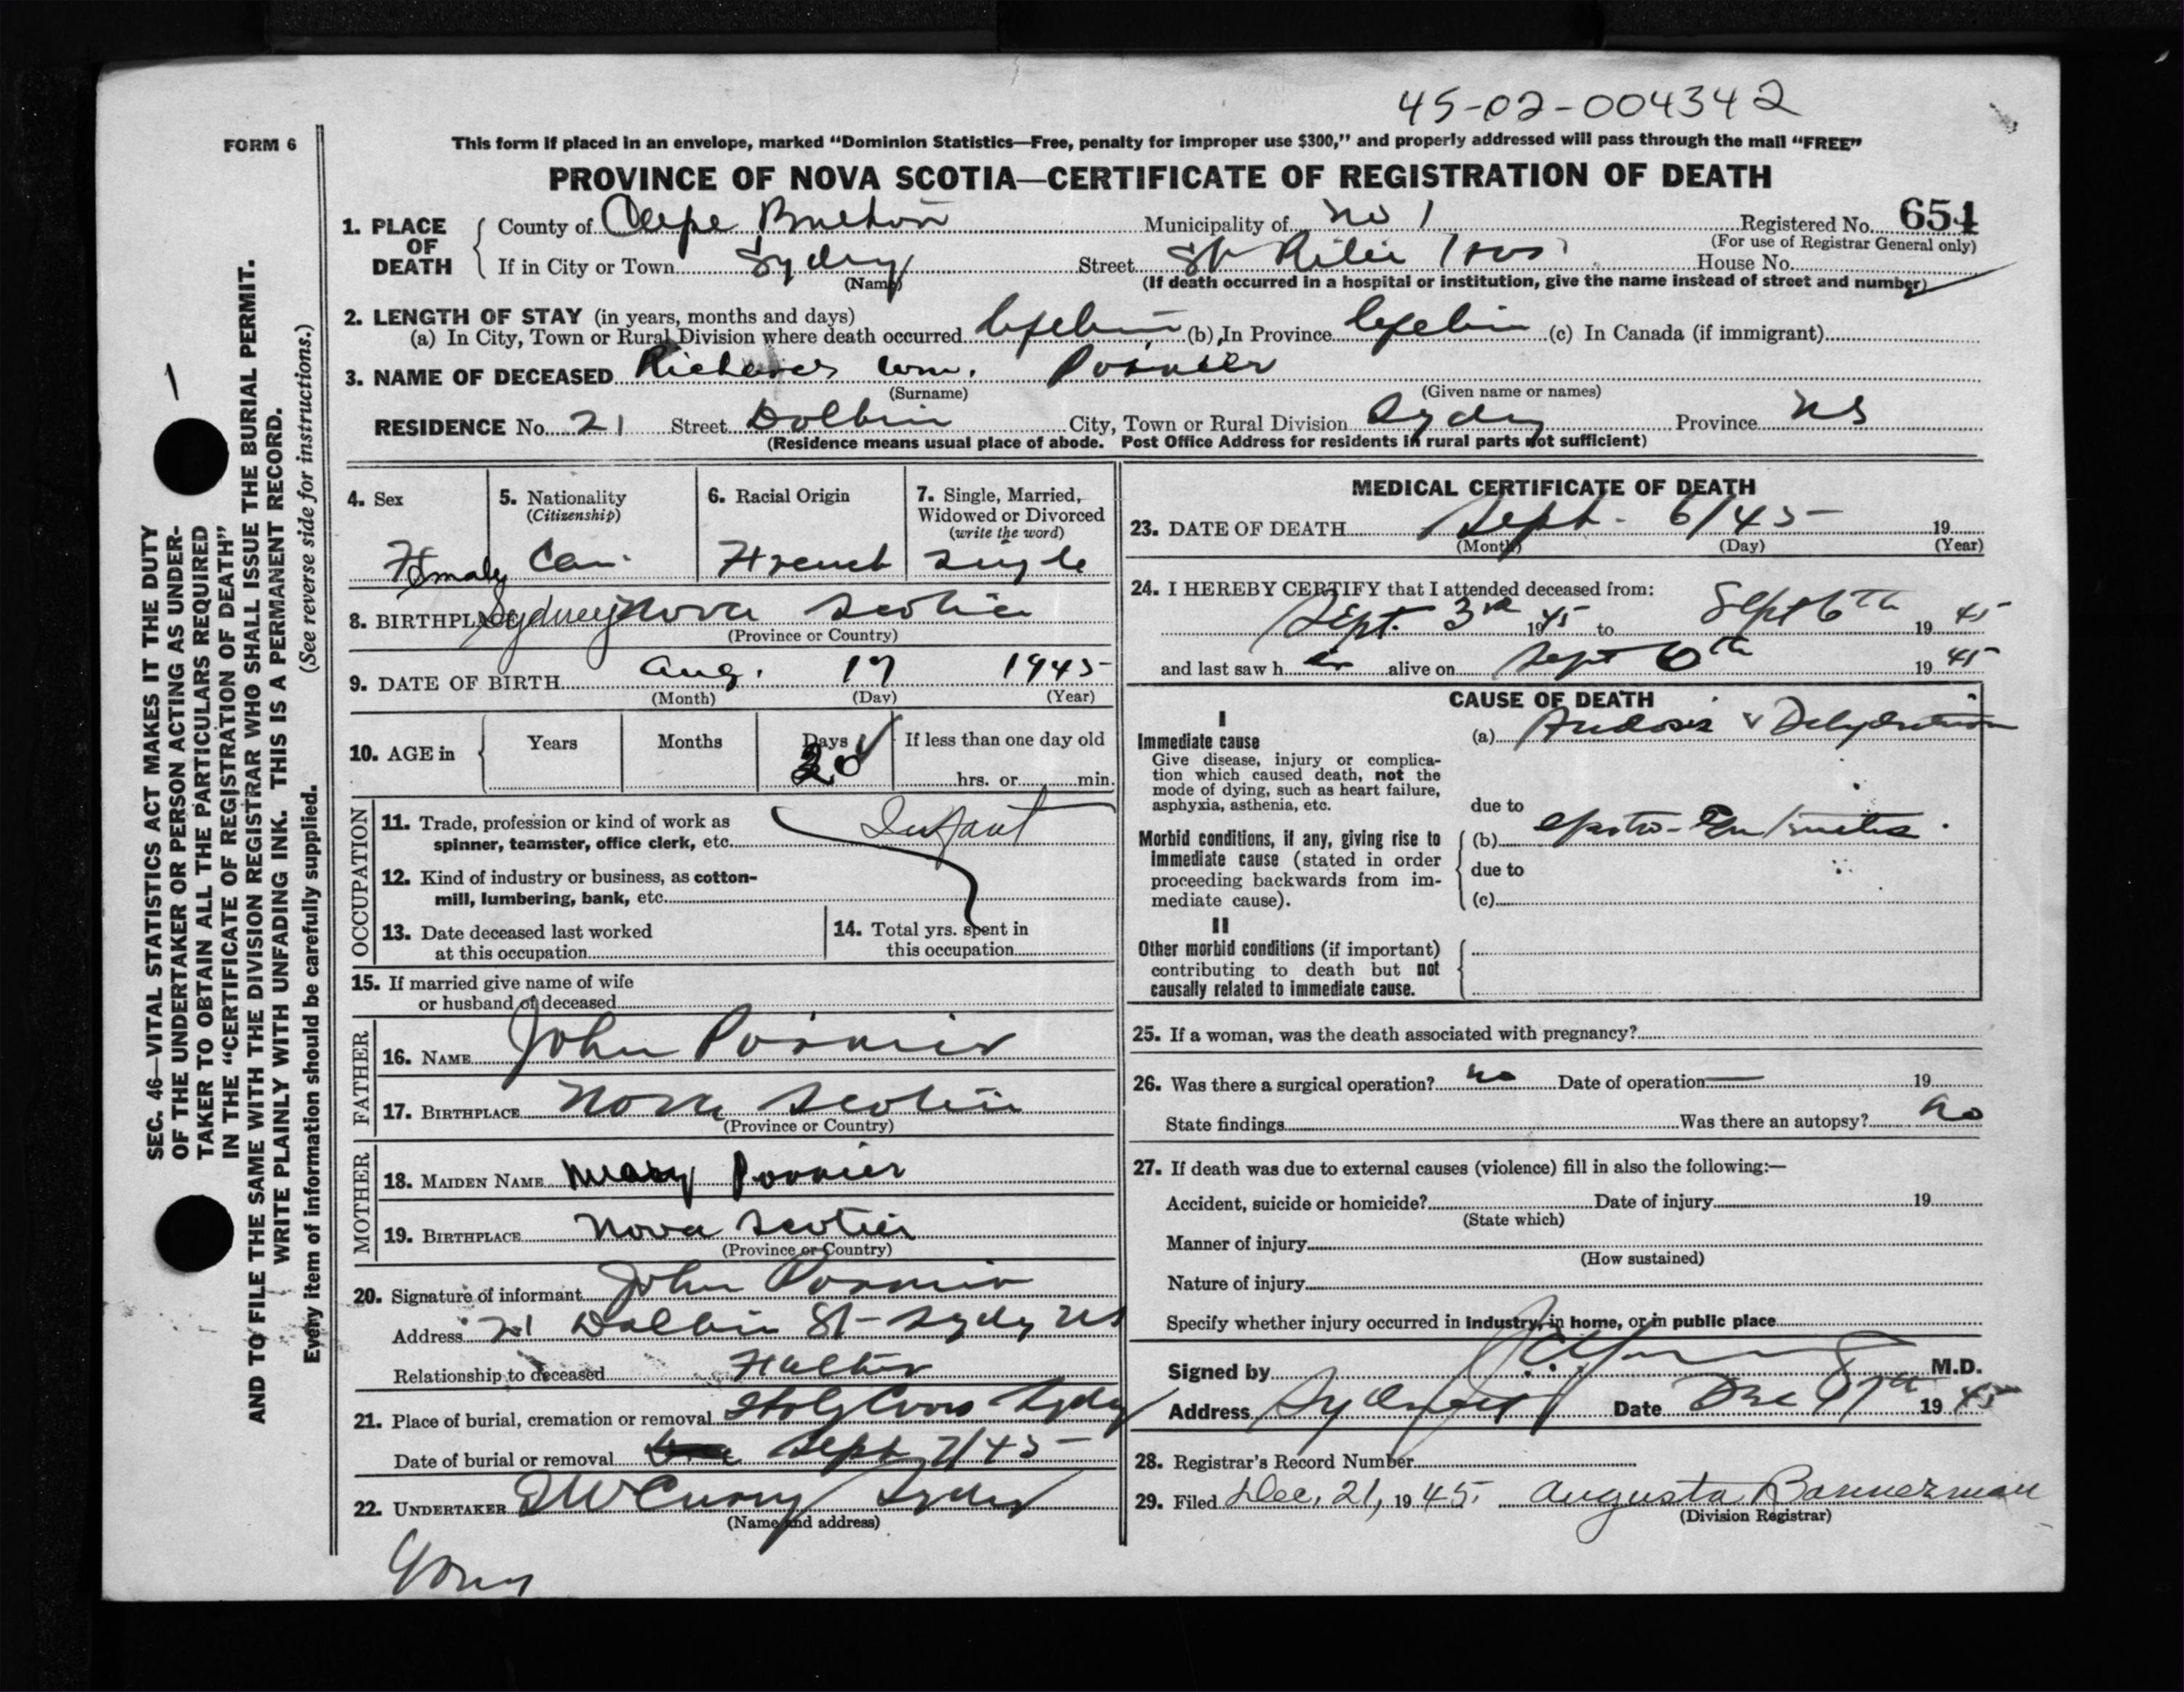 45-02-004342
FORM 6
This form if placed in an envelope, marked "Dominion Statistics—Free, penalty for improper use $300," and properly addressed will pass through the mail "FREE"
PROVINCE OF NOVA SCOTIA—CERTIFICATE OF REGISTRATION OF DEATH
1. PLACE OF DEATH County of Cape Breton Municipality of No 1 Registered No. 651
(For use of Registrar General only)
If in City or Town Sydney Street St Rita Hos. House No.
(Name) (If death occurred in a hospital or institution, give the name instead of street and number)
2. LENGTH OF STAY (in years, months and days)
(a) In City, Town or Rural Division where death occurred Lifetime (b) In Province Lifetime (c) In Canada (if immigrant)
3. NAME OF DECEASED Richard Wm. Poirier
(Surname) (Given name or names)
RESIDENCE No. 21 Street Dolbin City, Town or Rural Division Sydney Province NS
(Residence means usual place of abode. Post Office Address for residents in rural parts not sufficient)
4. Sex 5. Nationality (Citizenship) 6. Racial Origin 7. Single, Married, Widowed or Divorced (write the word)
Female Can. French Single
8. BIRTHPLACE Sydney Nova Scotia
(Province or Country)
9. DATE OF BIRTH Aug. 17 1945
(Month) (Day) (Year)
10. AGE in Years Months Days If less than one day old
20 hrs. or min.
OCCUPATION
11. Trade, profession or kind of work as spinner, teamster, office clerk, etc. Infant
12. Kind of industry or business, as cotton-mill, lumbering, bank, etc.
13. Date deceased last worked at this occupation
14. Total yrs. spent in this occupation
15. If married give name of wife or husband of deceased
FATHER
16. NAME John Poirier
17. BIRTHPLACE Nova Scotia
(Province or Country)
MOTHER
18. MAIDEN NAME Mary Poirier
19. BIRTHPLACE Nova Scotia
(Province or Country)
20. Signature of informant John Poirier
Address 21 Dolbin St - Sydney NS
Relationship to deceased Father
21. Place of burial, cremation or removal Holy Cross Sydney
Date of burial or removal Sept 7/45
22. UNDERTAKER Sydney
(Name and address)
MEDICAL CERTIFICATE OF DEATH
23. DATE OF DEATH Sept. 6/45 19
(Month) (Day) (Year)
24. I HEREBY CERTIFY that I attended deceased from:
Sept. 3rd 1945 to Sept 6th 19 45
and last saw h er alive on Sept 6th 19 45
CAUSE OF DEATH
I
Immediate cause
Give disease, injury or complication which caused death, not the mode of dying, such as heart failure, asphyxia, asthenia, etc.
(a) Acidosis & Dehydration
due to
Morbid conditions, if any, giving rise to immediate cause (stated in order proceeding backwards from immediate cause).
(b)
due to
(c)
II
Other morbid conditions (if important) contributing to death but not causally related to immediate cause.
25. If a woman, was the death associated with pregnancy?
26. Was there a surgical operation? no Date of operation — 19
State findings Was there an autopsy? no
27. If death was due to external causes (violence) fill in also the following:—
Accident, suicide or homicide? Date of injury 19
(State which)
Manner of injury
(How sustained)
Nature of injury
Specify whether injury occurred in Industry, in home, or in public place
Signed by M.D.
Address Sydney Date Dec 17th 19 45
28. Registrar's Record Number
29. Filed Dec. 21, 19 45. Augusta Bannerman
(Division Registrar)
SEC. 46—VITAL STATISTICS ACT MAKES IT THE DUTY
OF THE UNDERTAKER OR PERSON ACTING AS UNDER-
TAKER TO OBTAIN ALL THE PARTICULARS REQUIRED
IN THE "CERTIFICATE OF REGISTRATION OF DEATH"
AND TO FILE THE SAME WITH THE DIVISION REGISTRAR WHO SHALL ISSUE THE BURIAL PERMIT.
WRITE PLAINLY WITH UNFADING INK. THIS IS A PERMANENT RECORD.
Every item of information should be carefully supplied. (See reverse side for instructions.)